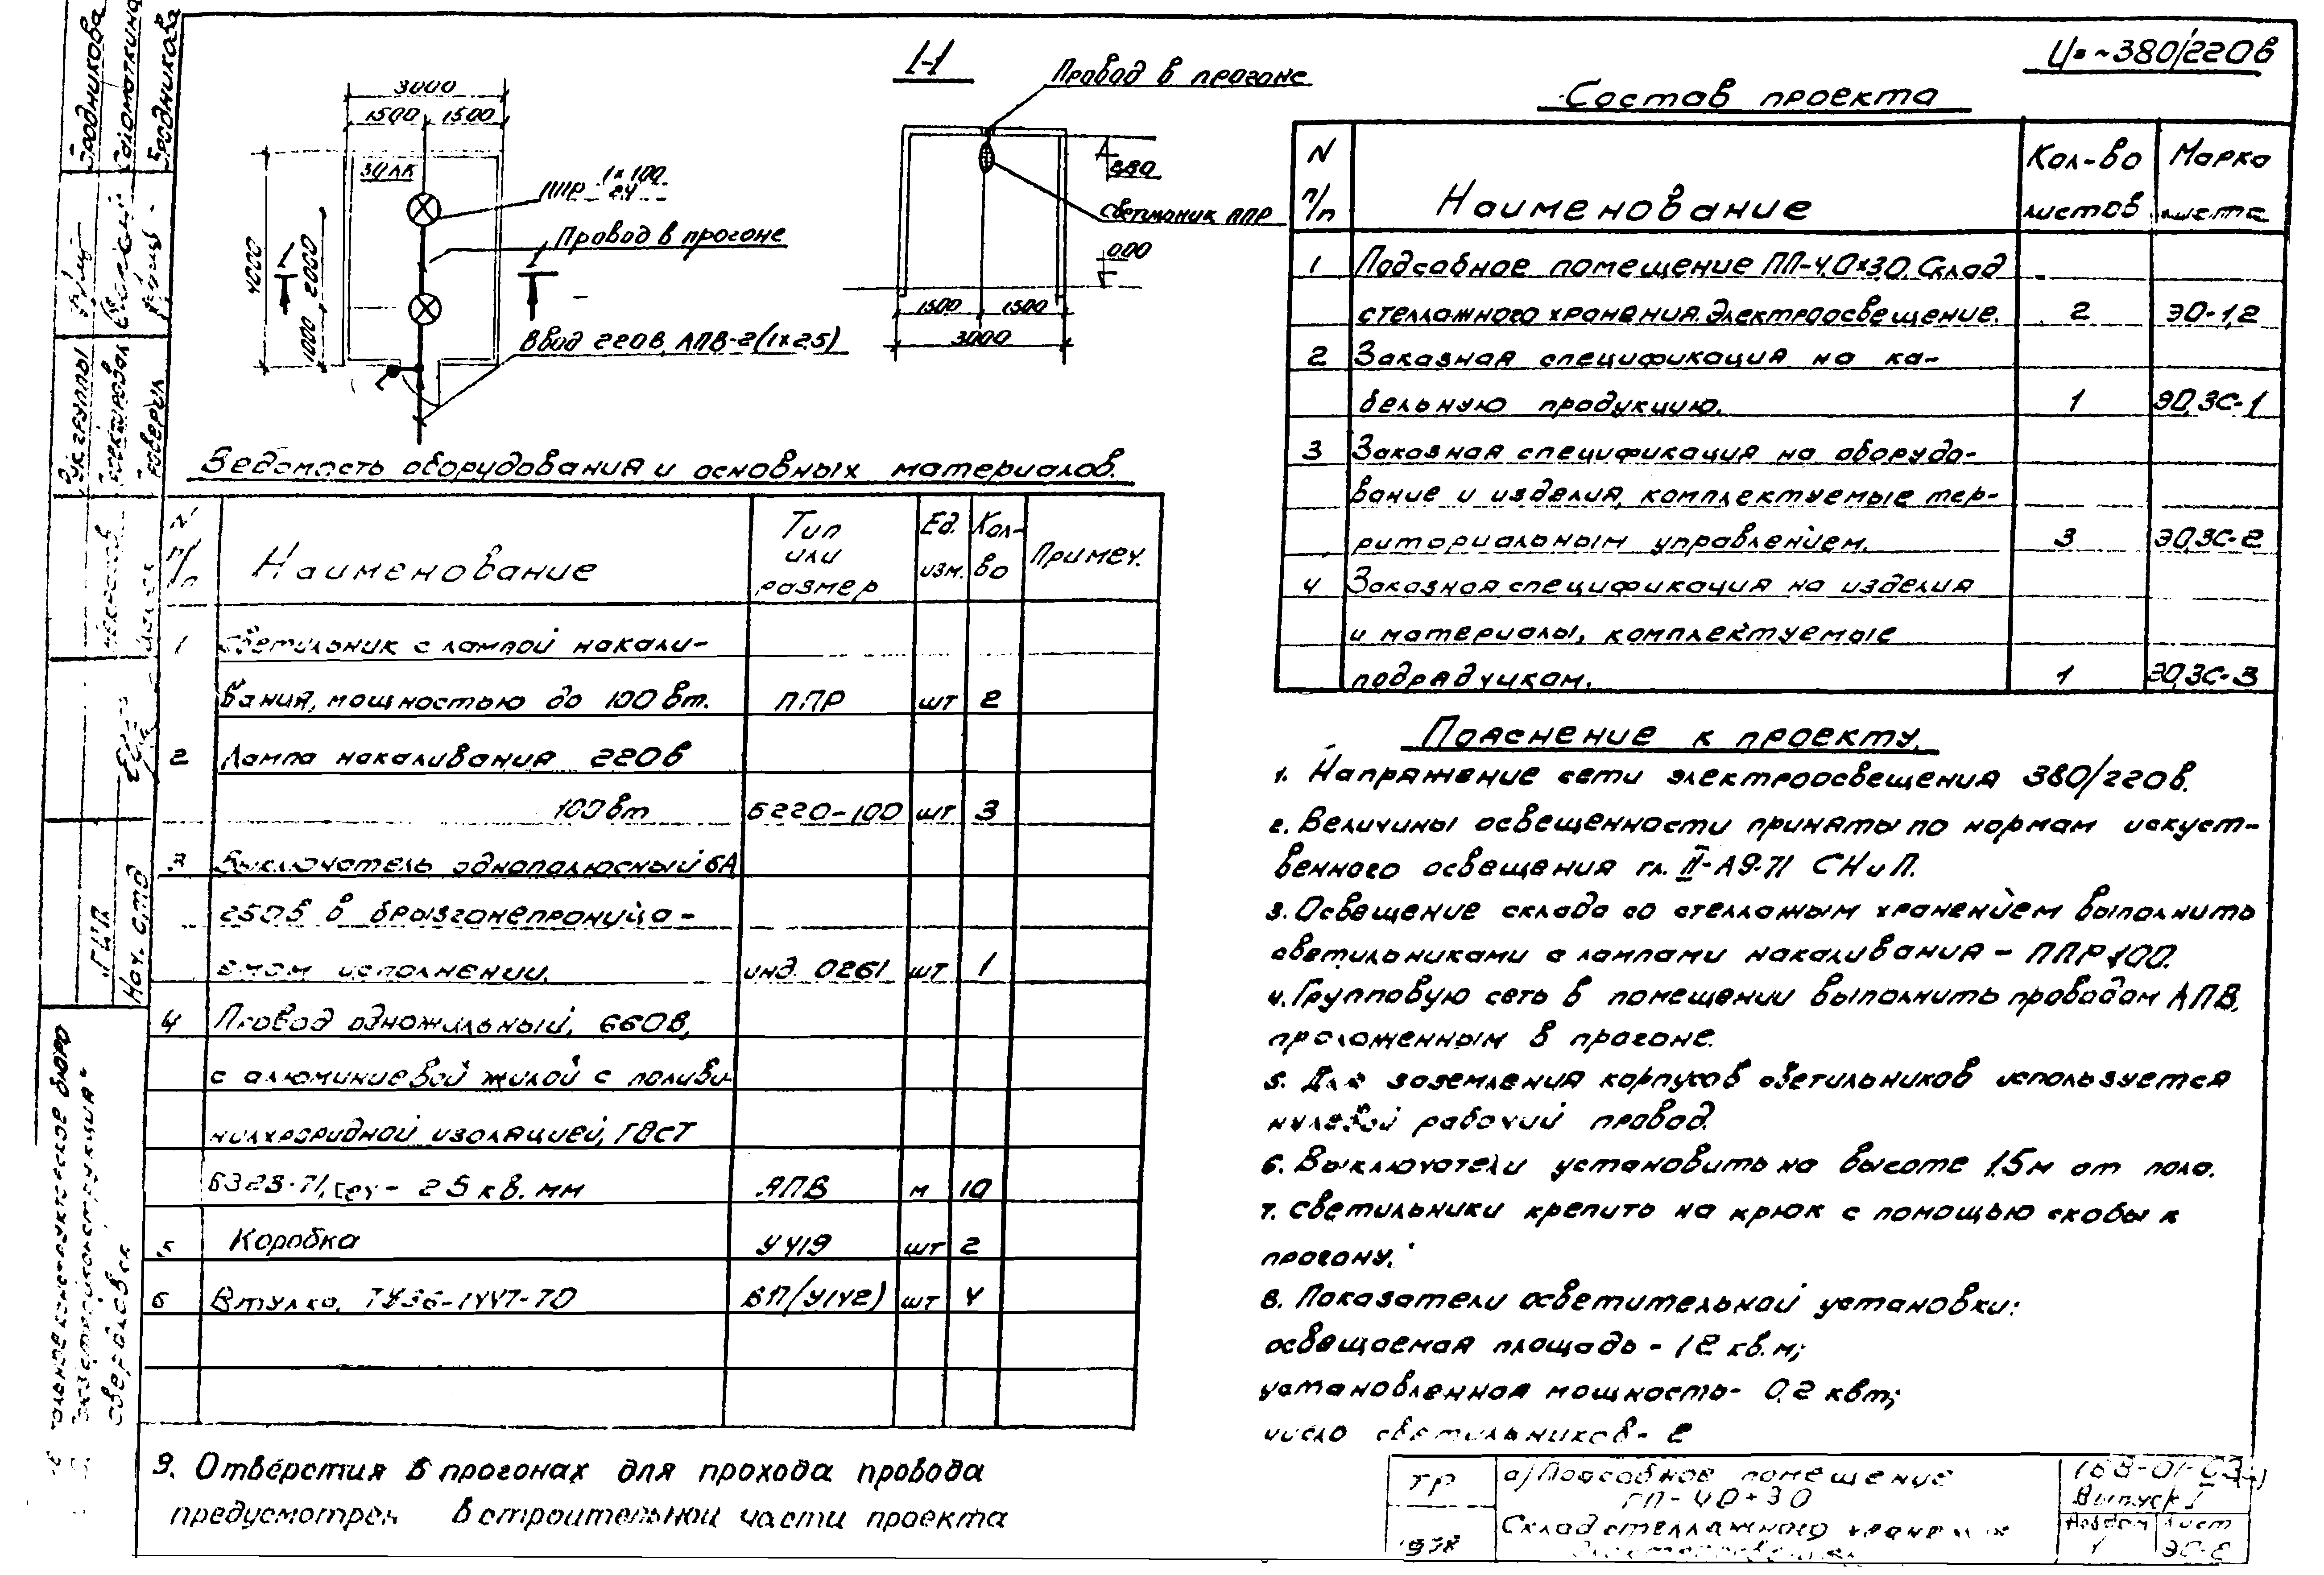 U=~380/220в
1-1
3000
1500 1500
30 ЛК
4000
1000 2000
ППР 1×100
2,4
Провод в прогоне
Ввод 220в, АПВ-2(1×2,5)
Провод в прогоне
Светильник ППР
0.00
1500 1500
3000
Ведомость оборудования и основных материалов.
N п/п Наименование Тип или размер Ед. изм. Кол-во Примеч.
1 Светильник с лампой накали-
вания, мощностью до 100 вт. ППР шт 2
2 Лампа накаливания 220в
100 вт Б220-100 шт 3
3 Выключатель однополюсный 6А
250в в брызгонепроница-
емом исполнении. инд. 0261 шт 1
4 Провод одножильный, 660в,
с алюминиевой жилой с поливи-
нилхлоридной изоляцией, ГОСТ
6323-71, сеч- 2,5 кв. мм АПВ м 10
5 Коробка У419 шт 2
6 Втулка, ТУ36-1447-70 ВП/У142) шт 4
9. Отверстия в прогонах для прохода провода
предусмотрен в строительной части проекта
Состав проекта
N п/п Наименование Кол-во листов Марка листа
1 Подсобное помещение ПП-4,0×3,0. Склад
стеллажного хранения. Электроосвещение. 2 ЭО-1,2
2 Заказная спецификация на ка-
бельную продукцию. 1 ЭО,ЗС-1
3 Заказная спецификация на оборудо-
вание и изделия, комплектуемые тер-
риториальным управлением. 3 ЭО,ЗС-2
4 Заказная спецификация на изделия
и материалы, комплектуемые
подрядчиком. 1 ЭО,ЗС-3
Пояснение к проекту.
1. Напряжение сети электроосвещения 380/220в.
2. Величины освещенности приняты по нормам искуст-
венного освещения гл. II-А.9-71 СНиП.
3. Освещение склада со стеллажым хранением выполнить
светильниками с лампами накаливания - ППР-100.
4. Групповую сеть в помещении выполнить проводом АПВ,
проложенным в прогоне.
5. Для заземления корпусов светильников используется
нулевой рабочий провод.
6. Выключатели установить на высоте 1,5м от пола.
7. Светильники крепить на крюк с помощью скобы к
прогону.
8. Показатели осветительной установки:
освещаемая площадь - 12 кв.м;
установленная мощность- 0,2 квт;
число светильников- 2
ТР
1978
а) Подсобное помещение
ПП-4,0×3,0
Склад стеллажного хранения
Выпуск I
Альбом Лист
1
Бродникова
Соломаткина
Бродникова
Рук. группы
Проектировал
Проверил
ГИП
Нач. отд
конструкторское бюро
Свердловск